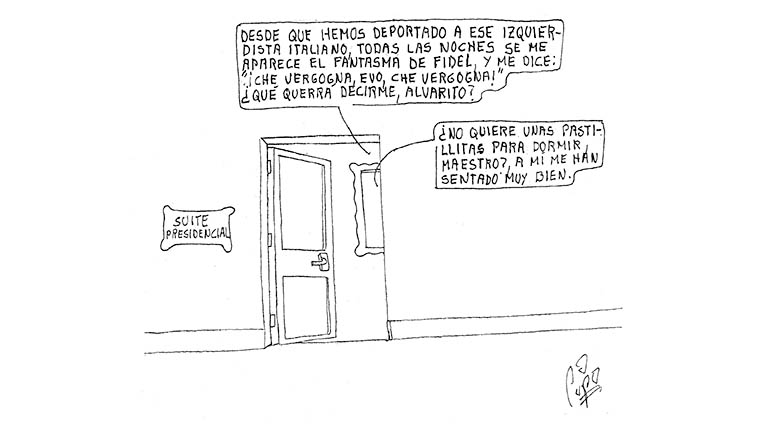 DESDE QUE HEMOS DEPORTADO A ESE IZQUIER-
DISTA ITALIANO, TODAS LAS NOCHES SE ME
APARECE EL FANTASMA DE FIDEL, Y ME DICE:
"¡CHE VERGOGNA, EVO, CHE VERGOGNA!"
¿QUÉ QUERRÁ DECIRME, ALVARITO?
¿NO QUIERE UNAS PASTI-
LLITAS PARA DORMIR,
MAESTRO?, A MI ME HAN
SENTADO MUY BIEN.
SUITE
PRESIDENCIAL